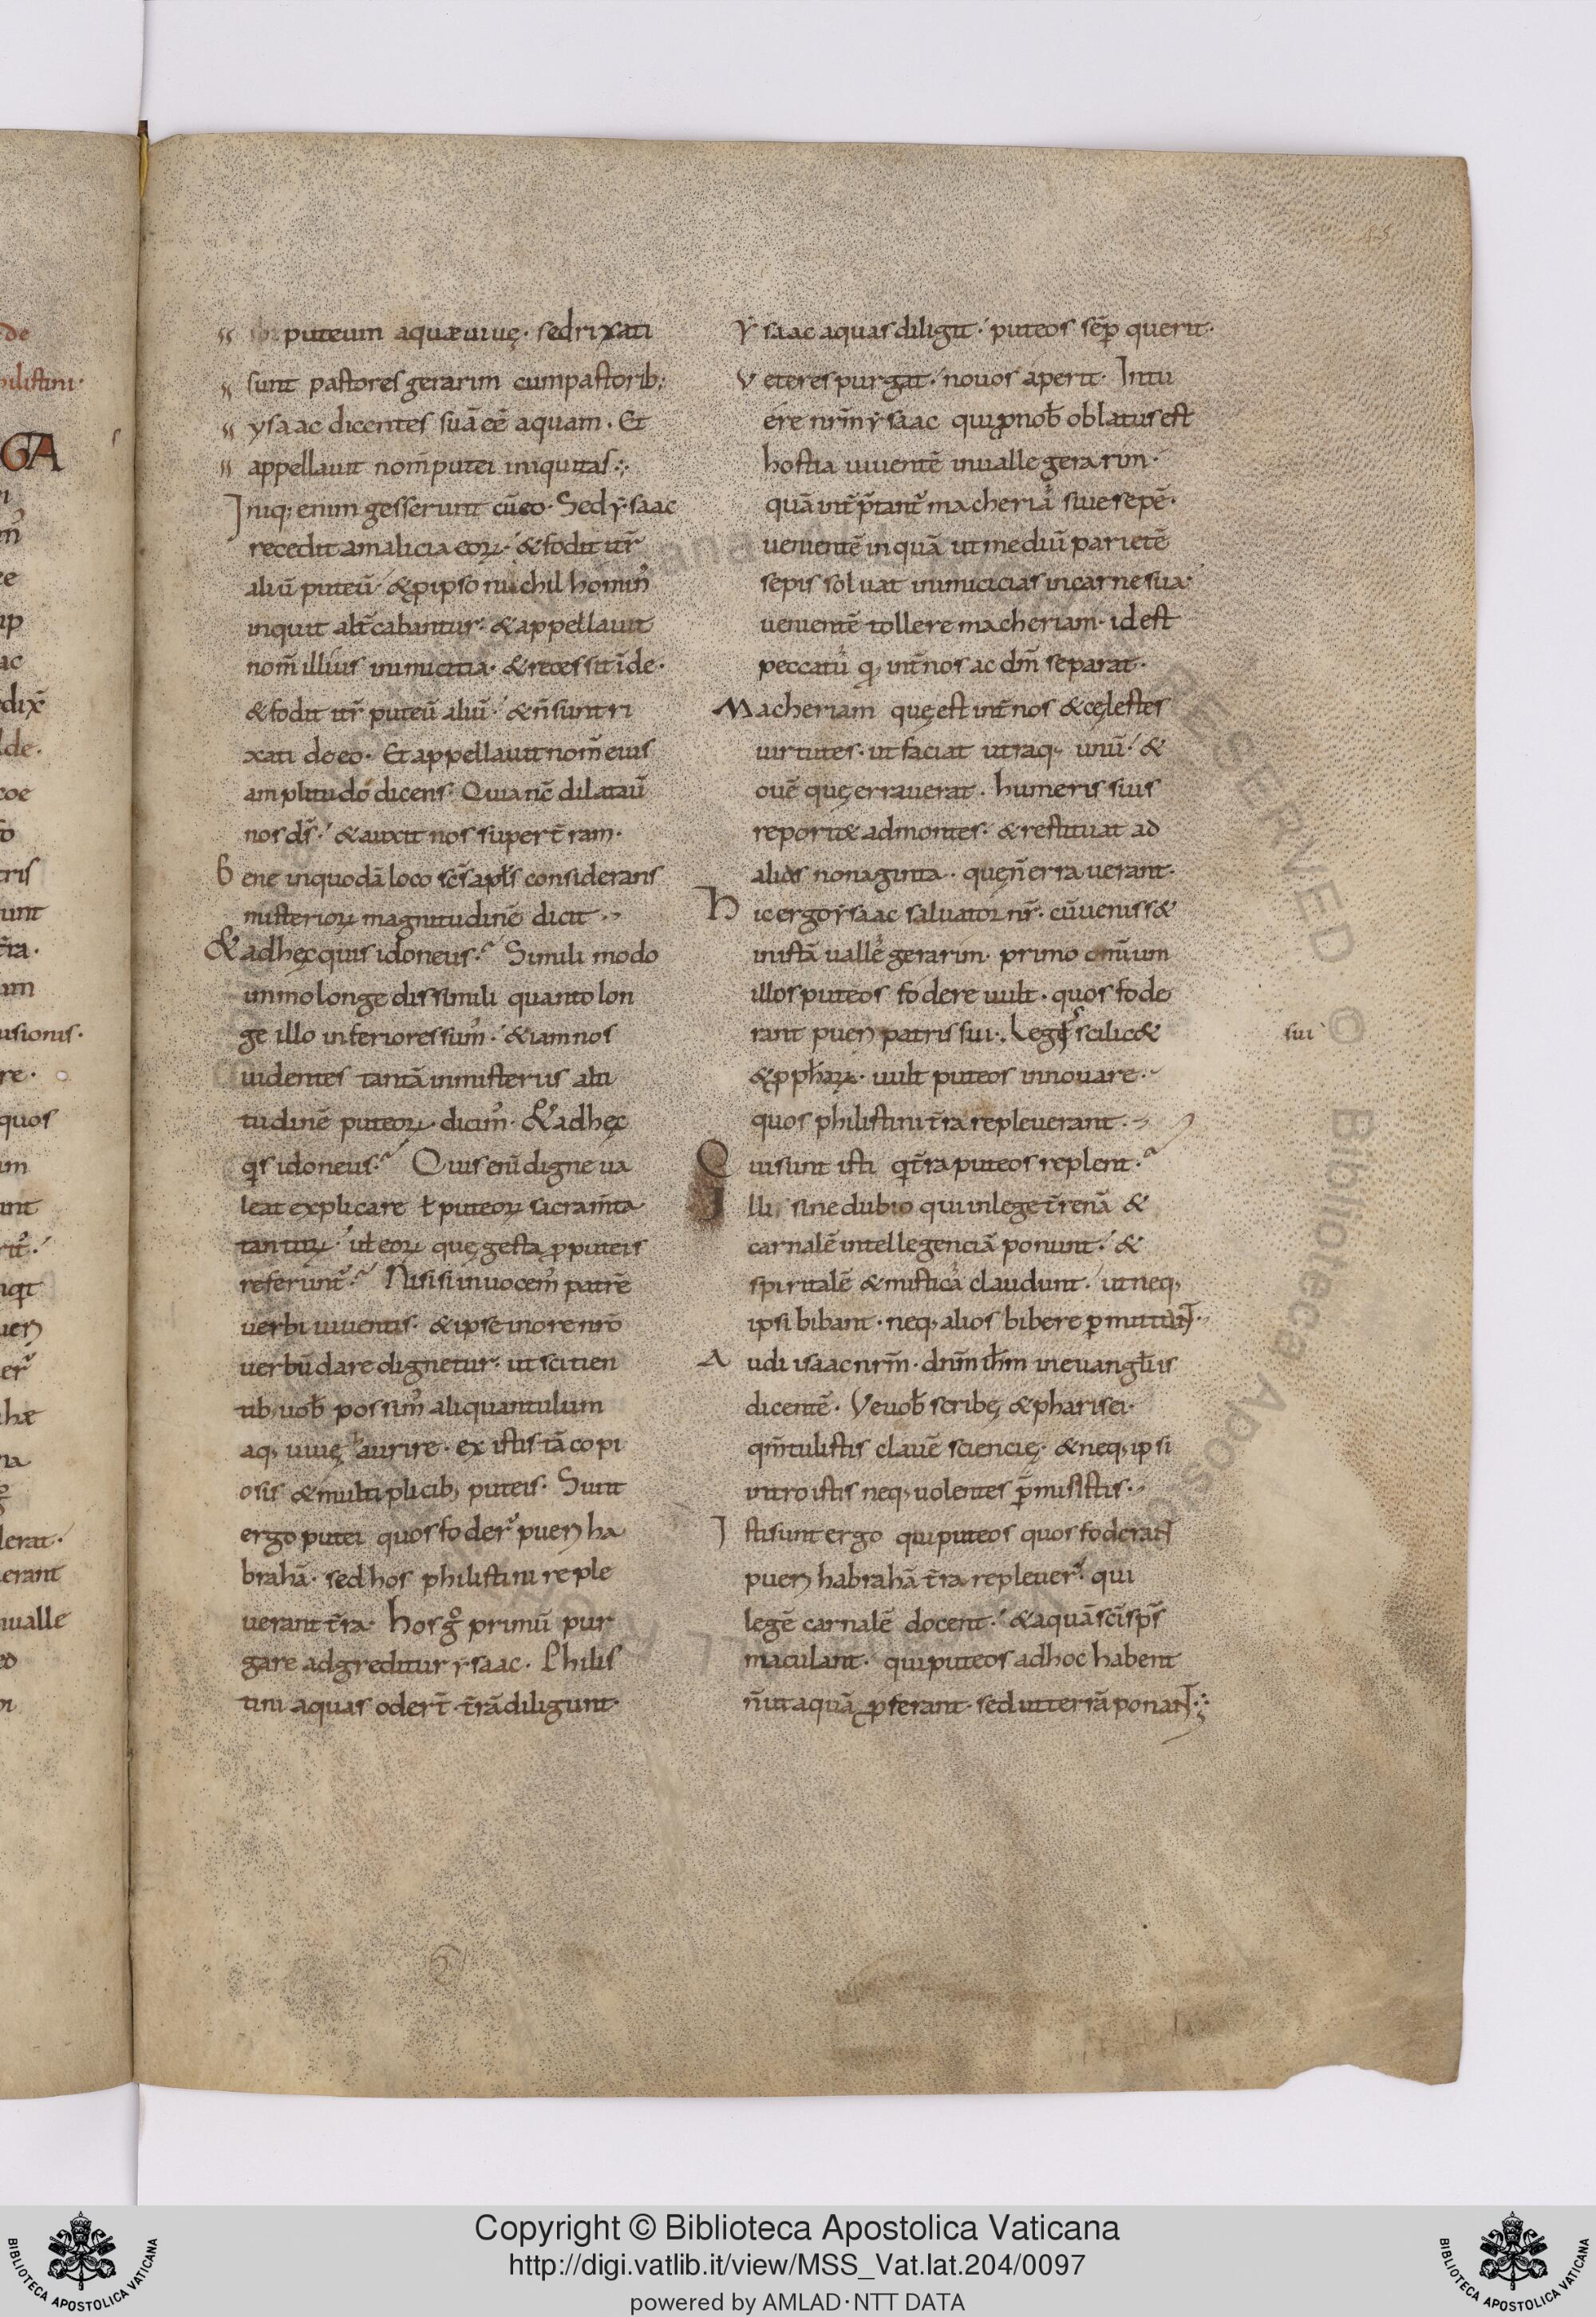 puteum aquæ uiuę· sed rixati
sunt pastores gerarim cum pastorib;
ysaac dicentes suā eē aquam· Et
appellauit nom̄ putei iniquitas·
Iniq; enim gesserunt cū eo· Sed ẏsaac
recedit a malicia eoꝝ· & fodit itr̄
aliū puteū· & ꝓ ipso nichil homin᷒
inquit alt̄cabantur· & appellauit
nom̄ illius inimicitia· & recessit īde·
& fodit itr̄ puteū aliū· & n̄ sunt ri
xati de eo· Et appellauit nom̄ eius
amplitudo dicens· Quia nc̄ dilatau̅
nos ds̄· & auxit nos super t̄ram·
Bene in quodā loco sc̄s apl̄s considerans
misterioꝝ magnitudinē dicit·
& ad hęc quis idoneus· Simili modo
immo longe dissimili quanto lon
ge illo inferiores sum᷒· & iam nos
uidentes tantā in misteriis alti
tudinē puteoꝝ· dicim᷒· & ad hęc
qͥs idoneus· Quis eni̅ digne ua
leat explicare ł puteoꝝ sacram̄ta
tantoꝝ· uł eoꝝ quę gesta ꝓ puteis
referunt᷒· Nisi si inuocem᷒ patrē
uerbi uiuentis· & ipse in ore nr̄o
uerbū dare dignetur· ut sitien
tib; uob̄ possim᷒ aliquantulum
aq; uiuę haurire· ex istis tā copi
osis & multiplicib; puteis· Sunt
ergo putei quos foder᷒ pueri ha
brahā· sed hos philistini reple
uerant t̄ra· hos gͦ primū pur
gare adgreditur ẏsaac· Philis
tini aquas oder̄t· t̄rā diligunt·
Ẏsaac aquas diligit· puteos sēp querit·
Veteres purgat· nouos aperit· Intu
ere nr̄m ẏsaac qui ꝓ nob̄ oblatus est
hostia uiuentē in ualle gerarim·
quā int̄ꝓtant᷒ macheriā siue sepē·
uenientē in quā ut mediū parietē
sepis soluat inimicicias in carne sua·
uenientē tollere macheriam· id est
peccatū qͩ int̄ nos ac dm̄ separat·
Macheriam quę est int̄ nos & cęlestes
uirtutes· ut faciat utraq; unū· &
ouē quę errauerat· humeris suis
reporit& ad montes· & restituat ad
alias nonaginta· quę n̄ errauerant·
Hic ergo ẏsaac saluator nr̄· cūueniss&
in istā uallē gerarim· primo om̄ium
illos puteos fodere uult· quos fode
rant pueri patris sui· Legis scilic&
& ꝓphaꝝ· uult puteos innouare·
sui
quos philistini t̄ra repleuerant·
Qui sunt isti qͥ t̄ra puteos replent·
Illi, sine dubio qui in lege t̄renā &
carnalē intellegenciā ponunt· &
spiritalē & misticā claudunt· ut neq;
ipsi bibant· neq; alios bibere ꝑmittunt·
Audi isaac nr̄m· dnm̄ ih̄m in euangl̄iis
dicentē· Ve uob̄ scribę & pharisei·
qm̄ tulistis clauē sciencię· & neq; ipsi
introistis neq; uolentes ꝑmisistis·
Isti sunt ergo qui puteos quos foderant
pueri habrahā t̄ra repleuer᷒· qui
legē carnalē docent· & aquā sc̄i sps̄
maculant· qui puteos adhoc habent
n̄ ut aquā ꝓferant· sed ut terrā ponant·
Copyright © Biblioteca Apostolica Vaticana
http://digi.vatlib.it/view/MSS_Vat.lat.204/0097
powered by AMLAD·NTT DATA